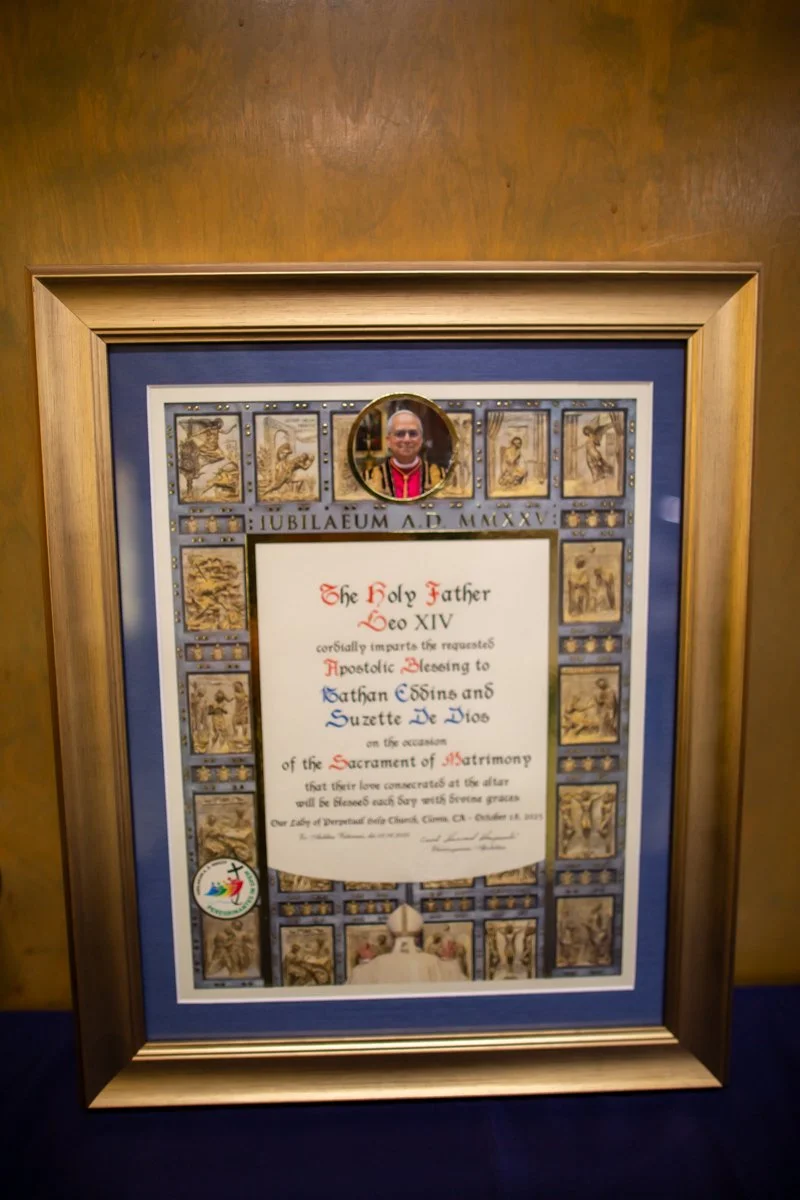 IUBILAEUM A.D. MMXXV
The Holy Father
Leo XIV
cordially imparts the requested
Apostolic Blessing to
Nathan Eddins and
Suzette De Dios
on the occasion
of the Sacrament of Matrimony
that their love consecrated at the altar
will be blessed each day with divine graces
Our Lady of Perpetual Help Church, CA - October 18, 2025
PEREGRINANTES